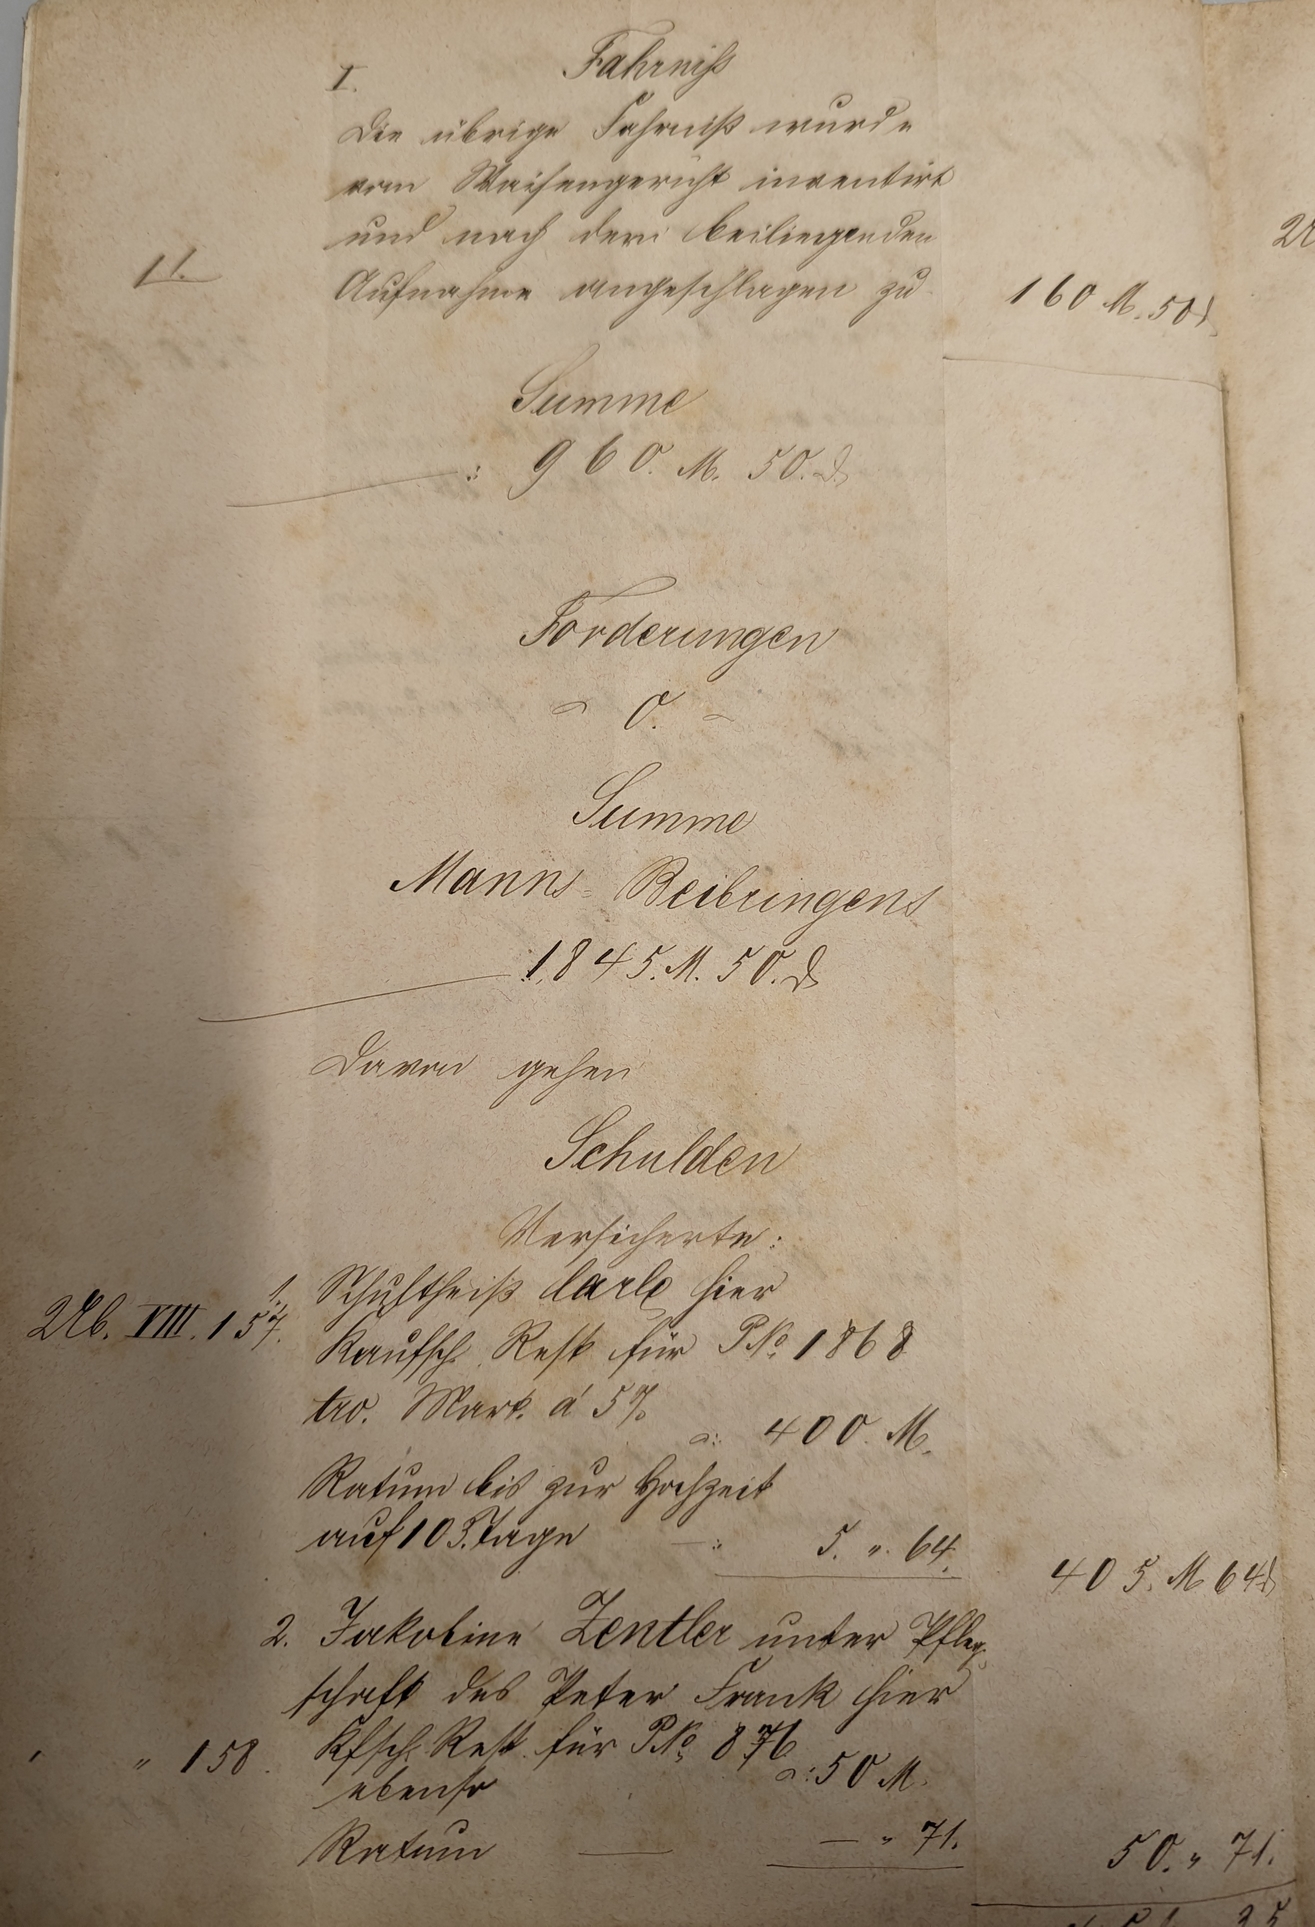 I. Fahrniß
Die übrige Fahrniß wurde
vom Waisengericht inventirt
und nach dem beiliegenden
Aufnahme angeschlagen zu
160 M. 50 ₰
Summe
: 960. M. 50. ₰
Forderungen
- 0. -
Summe
Manns-Beibringens
: 1845. M. 50. ₰
Davon gehen
Schulden
Versicherte:
1. Schultheiß hier
Ub. VIII. 157. Kaufsch. Rest für PNo. 1868
Mart. á 5%
a: 400. M.
Ratum bis zur Hochzeit
auf 103. Tage —: 5. „ 64.
405. M 64 ₰
2. Jakobine Zentler unter Pfleg-
schaft des Peter Frank hier
„ „ 158. Kfsch. Rest. für PNo. 876
ebenso a: 50 M.
Ratum — — „ 71.
50. „ 71.